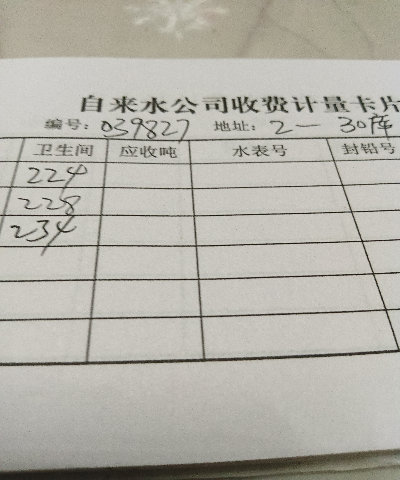 自来水公司收费计量卡片
编号:039827 地址:2－30库
卫生间 应收吨 水表号 封铅号
224
228
234